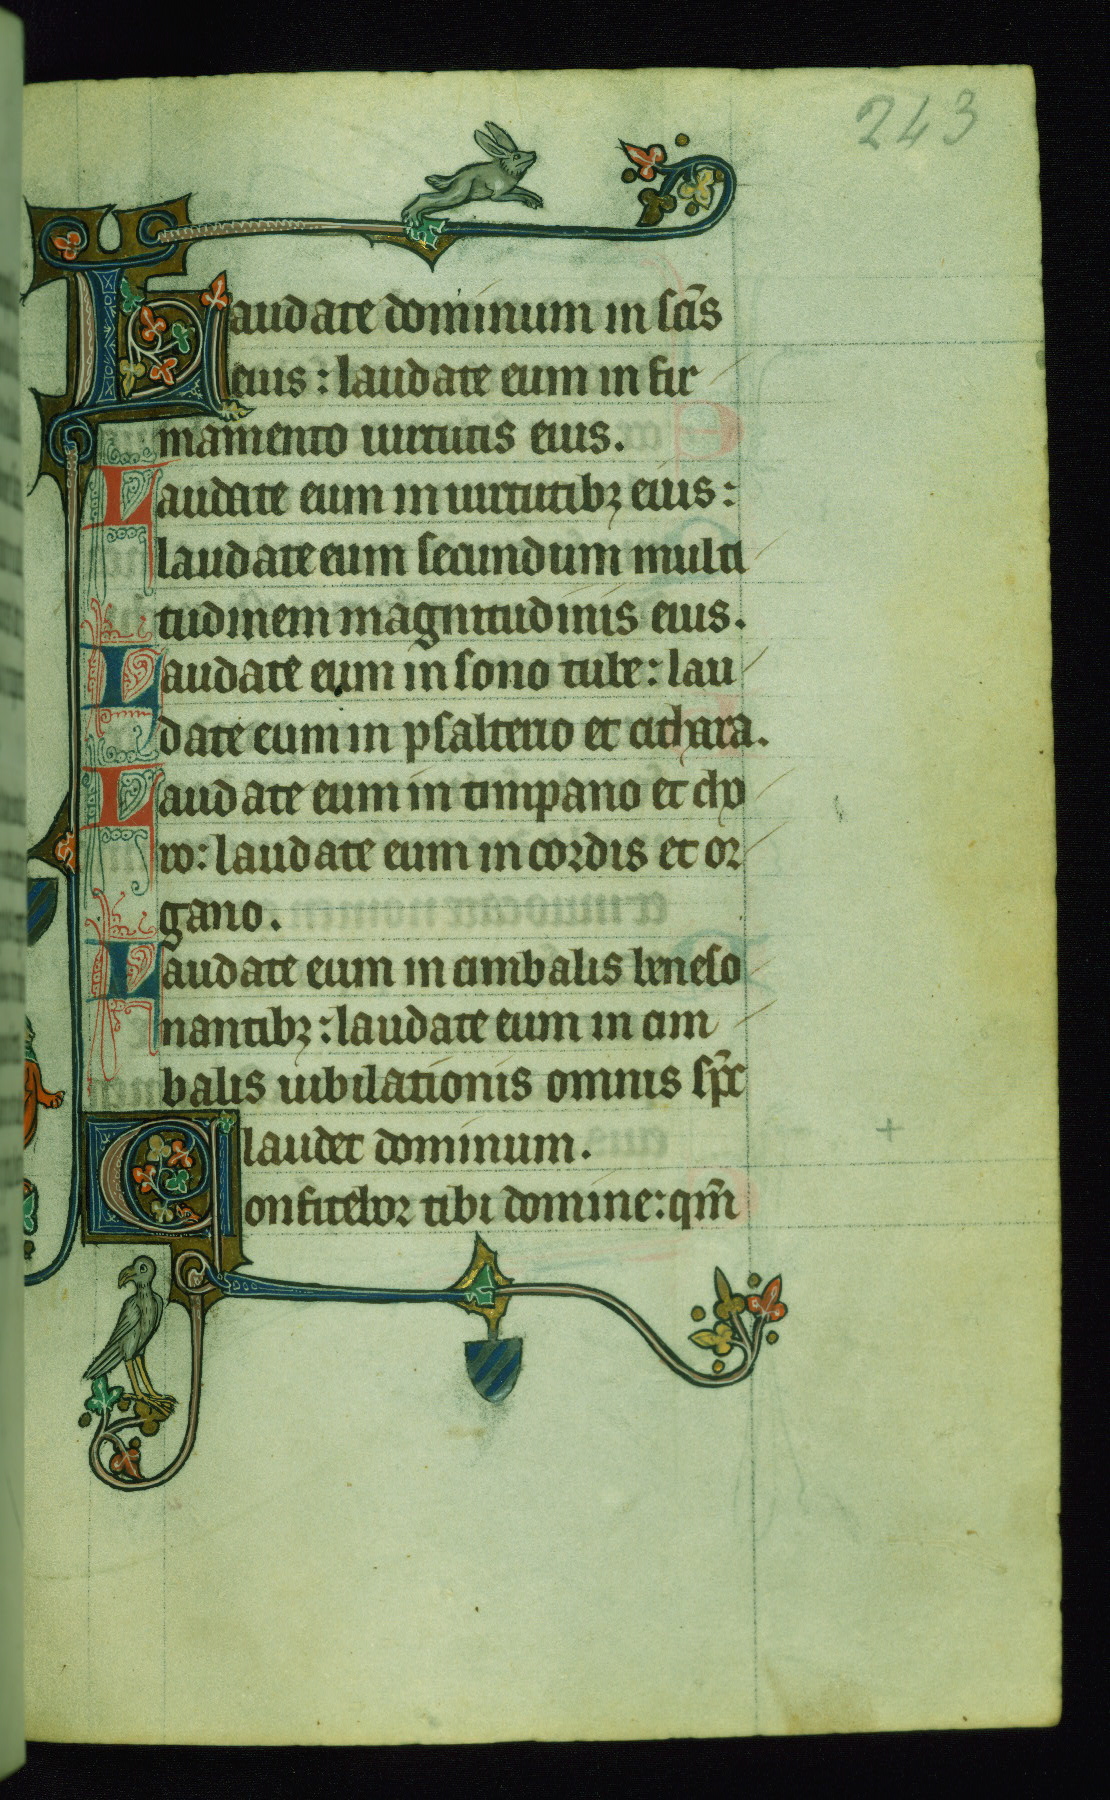 243
Laudate dominum in sc̄is
eius : laudate eum in fir
mamento uirtutis eius.
Laudate eum in uirtutibꝫ eius :
laudate eum secundum multi
tudinem magnitudinis eius.
Laudate eum in sono tube : lau
date eum in psalterio et cithara.
Laudate eum in timpano et cho
ro : laudate eum in cordis et or
gano.
Laudate eum in cimbalis beneso
nantibꝫ : laudate eum in cim
balis iubilationis omnis sp̄c
laudet dominum.
Confitebor tibi domine : qm̄